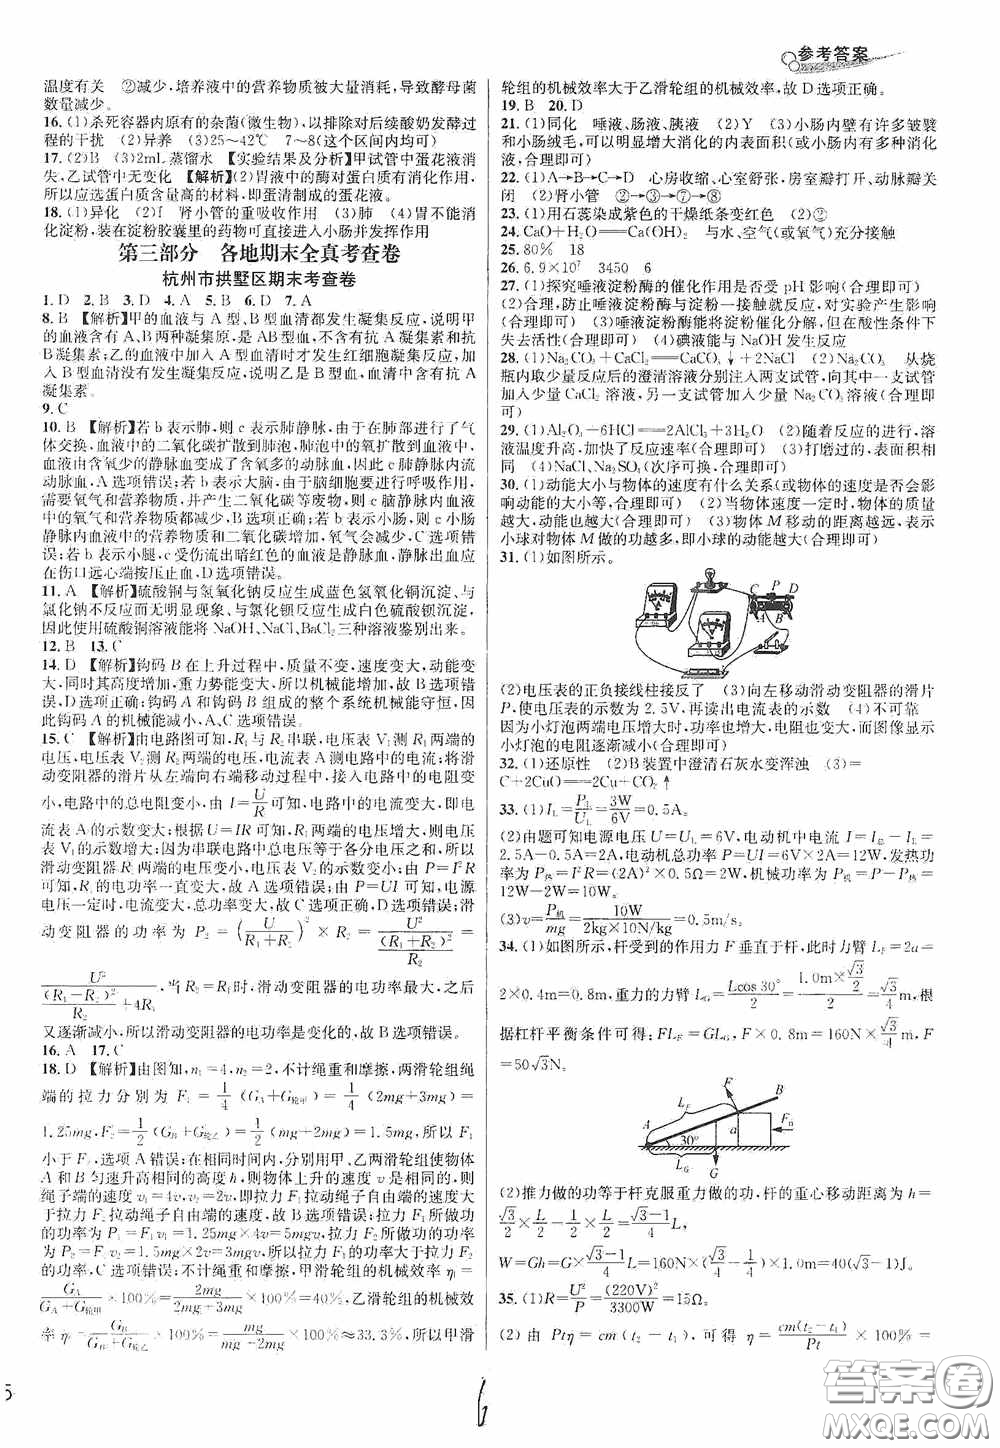 参考答案
温度有关　②减少,培养液中的营养物质被大量消耗,导致酵母菌
数量减少。
16. (1)杀死容器内原有的杂菌(微生物),以排除对后续酸奶发酵过
程的干扰　(2)异养　(3)25～42℃　7－8(这个区间内均可)
17. (2)B　(3)2mL 蒸馏水　【实验结果及分析】甲试管中蛋花液消
失,乙试管中无变化　【解析】(2)胃液中的酶对蛋白质有消化作用,
所以应选蛋白质含量高的材料,即蛋清制成的蛋花液。
18. (1)异化　(2)f　肾小管的重吸收作用　(3)肺　(4)胃不能消
化淀粉,装在淀粉胶囊里的药物可直接进入小肠并发挥作用
第三部分　各地期末全真考查卷
杭州市拱墅区期末考查卷
1. D　2. B　3. D　4. A　5. D　6. D　7. A
8. B　【解析】甲的血液与 A 型、B 型血清都发生凝集反应,说明甲
的血液含有 A、B 两种凝集原,是 AB 型血,不含有抗 A 凝集素和抗
B 凝集素;乙的血液中加入 A 型血清时才发生红细胞凝集反应,加
入 B 型血清没有发生凝集反应,说明乙是 B 型血,该血清含有抗 A
凝集素。
9. C
10. B　【解析】若 b 表示肺,则 c 表示肺静脉,由于在肺部进行了气
体交换,血液中的二氧化碳扩散到肺泡,肺泡中的氧扩散到血液中,
血液由含氧少的静脉血变成了含氧多的动脉血,因此 c 肺静脉内流
动脉血,A 选项错误;若 b 表示大脑,由于大脑要进行呼吸作用,
需要氧气和营养物质,并产生二氧化碳等废物,则 c 脑静脉内血液
中的氧气和营养物质都减少,B 选项正确;若 b 表示小肠,则 c 小肠
静脉内营养物质含量增加,由于呼吸作用,氧气会减少,C 选项错
误;若 b 表示小腿,c 受伤流出暗红色的血液是静脉血,静脉出血应
在伤口远心端按压止血,D 选项错误。
11. A　【解析】硫酸铜与氢氧化钠反应生成蓝色氢氧化铜沉淀,与
氯化钠不反应而无明显现象、与氯化钡反应生成白色硫酸钡沉淀,
因此使用硫酸铜溶液能将 NaOH、NaCl、BaCl₂ 三种溶液鉴别出来。
12. B　13. C
14. D　【解析】钩码 B 在上升过程中,质量不变,速度变大,动能变
大,同时其高度增加,重力势能变大,所以机械能增加,故 B 选项错
误,D 选项正确;钩码 A 和钩码 B 组成的整个系统机械能守恒,因
此钩码 A 的机械能减小,A、C 选项错误。
15. C　【解析】由电路图可知,R₁ 与 R₂ 串联,电压表 V₁ 测 R₁ 两端的
电压,电压表 V₂ 测 R₂ 两端的电压,电流表 A 测电路中的电流;将滑
动变阻器的滑片从左端向右端移动过程中,接入电路中的电阻变
小,电路中的总电阻变小,由 I=U/R 可知,电路中的电流变大,即电
流表 A 的示数变大;根据 U=IR 可知,R₁ 两端的电压增大,则电压
表 V₁ 的示数增大;因为串联电路中总电压等于各分电压之和,所以
滑动变阻器 R₂ 两端的电压变小,电压表 V₂ 的示数变小;由 P=I²R
可知,R₁ 的电功率一直变大,故 A 选项错误;由 P=UI 可知,电源
电压一定时,电流变大,总功率变大,故 C 选项正确,D 选项错误;滑
动变阻器的功率为 P₂=(U/(R₁+R₂))²×R₂=U²/((R₁+R₂)²/R₂)=
U²/((R₁−R₂)²/R₂+4R₁),当 R₂=R₁时,滑动变阻器的电功率最大,之后
又逐渐减小,所以滑动变阻器的电功率是变化的,故 B 选项错误。
16. A　17. C
18. D　【解析】由图知,n₁=4,n₂=2,不计绳重和摩擦,两滑轮组绳
端的拉力分别为 F₁=1/4(G_A+G轮甲)=1/4(2mg+3mg)=
1.25mg,F₂=1/2(G_B+G轮乙)=1/2(mg+2mg)=1.5mg,所以 F₁
小于 F₂,选项 A 错误;在相同时间内,分别用甲、乙两滑轮组使物体
A 和 B 匀速升高相同的高度 h,则物体上升的速度 v 是相同的,则
绳子端的速度 v₁=4v,v₂=2v,即拉力 F₁ 拉动绳子自由端的速度大
于拉力 F₂ 拉动绳子自由端的速度,故 B 选项错误;拉力 F₁ 所做功
的功率为 P₁=F₁v₁=1.25mg×4v=5mgv,拉力 F₂ 所做功的功率
为 P₂=F₂v₂=1.5mg×2v=3mgv,所以拉力 F₁ 的功率大于拉力 F₂
的功率,C 选项错误;不计绳重和摩擦,甲滑轮组的机械效率 η₁=
G_A/(G_A+G轮甲)×100%=2mg/(2mg+3mg)×100%=40%,乙滑轮组的机械效
率 η₂=G_B/(G_B+G轮乙)×100%=mg/(mg+2mg)×100%≈33.3%,所以甲滑
轮组的机械效率大于乙滑轮组的机械效率,故 D 选项正确。
19. B　20. D
21. (1)同化　唾液、肠液、胰液　(2)Y　(3)小肠内壁有许多皱襞
和小肠绒毛,可以明显增大消化的内表面积(或小肠内有多种消化
液,合理即可)
22. (1)A→B→C→D　心房收缩、心室舒张,房室瓣打开、动脉瓣关
闭　(2)肾小管　②→③→⑦→⑧
23. (1)用石蕊染成紫色的干燥纸条变红色　(2)②
24. CaO+H₂O══Ca(OH)₂　与水、空气(或氧气)充分接触
25. 80%　18
26. 6.9×10⁷　3450　6
27. (1)探究唾液淀粉酶的催化作用是否受 pH 影响(合理即可)
(2)合理,防止唾液淀粉酶与淀粉一接触就反应,对实验产生影响
(合理即可)　(3)唾液淀粉酶能将淀粉催化分解,但在酸性条件下
失去活性(合理即可)　(4)碘液能与 NaOH 发生反应
28. (1)Na₂CO₃+CaCl₂══CaCO₃↓+2NaCl　(2)Na₂CO₃　从烧
瓶内取少量反应后的澄清溶液分别注入两支试管,向其中一支试管
加入少量 CaCl₂ 溶液,另一支试管加入少量 Na₂CO₃ 溶液(合理即
可)
29. (1)Al₂O₃+6HCl══2AlCl₃+3H₂O　(2)随着反应的进行,溶
液温度升高,加快了反应速率(合理即可)　(3)打磨过的,表面积相
同　(4)NaCl、Na₂SO₄(次序可换,合理即可)
30. (1)动能大小与物体的速度有什么关系(或物体的速度是否会影
响动能的大小等,合理即可)　(2)当物体速度一定时,物体的质量
越大,动能也越大(合理即可)　(3)物体 M 移动的距离越远,表示
小球对物体 M 做的功越多,即小球的动能越大(合理即可)
31. (1)如图所示。
C P D
A B
(2)电压表的正负接线柱接反了　(3)向左移动滑动变阻器的滑片
P,使电压表的示数为 2.5V,再读出电流表的示数　(4)不可靠
因为小灯泡两端电压增大时,功率也增大,电阻也变大,而图像显示
小灯泡的电阻逐渐减小(合理即可)
32. (1)还原性　(2)B 装置中澄清石灰水变浑浊　(3)═
C+2CuO══2Cu+CO₂↑
33. (1)I_L=P_L/U_L=3W/6V=0.5A。
(2)由题可知电源电压 U=U_L=6V,电动机中电流 I=I总−I_L=
2.5A−0.5A=2A,电动机总功率 P=UI=6V×2A=12W,发热功
率为 P热=I²R=(2A)²×0.5Ω=2W,机械功率为 P机=P−P热=
12W−2W=10W。
(3)v=P机/mg=10W/(2kg×10N/kg)=0.5m/s。
34. (1)如图所示,杆受到的作用力 F 垂直于杆,此时力臂 L_F=2a=
2×0.4m=0.8m,重力的力臂 L_G=Lcos30°/2=(1.0m×√3/2)/2=√3/4m,根
据杠杆平衡条件可得:FL_F=GL_G,F×0.8m=160N×√3/4m,F
=50√3N。
F B L_F F₀ A 30° a L_G G
(2)推力做的功等于杆克服重力做的功,杆的重心移动距离为 h=
√3/2×L/2−1/2×L/2=(√3−1)/4L,
W=Gh=G×(√3−1)/4L=160N×(√3/4−1/4)×1.0m=(40√3−40)J。
35. (1)R=U²/P=(220V)²/3300W≈15Ω。
(2)由 Ptη=cm(t₂−t₁),可得 η=cm(t₂−t₁)/Pt×100%=
5
6
答案圈
MXQE.COM